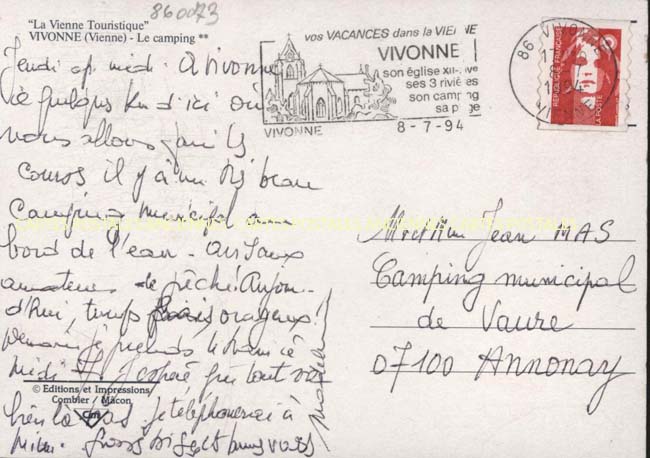 860073
"La Vienne Touristique"
VIVONNE (Vienne) - Le camping **
vos VACANCES dans la VIENNE
VIVONNE
son église XII-XVe
ses 3 rivières
son camping
sa plage
VIVONNE
8-7-94
86 VIVONNE
1994
VIENNE
REPUBLIQUE FRANÇAISE
LA POSTE
Jeudi ap. midi. A Vivonne
quelques Km d'ici où
nous allons faire les
courses il y a un très beau
camping municipal au
bord de l'eau - avis aux
amateurs de pêche. Aujour-
d'hui, temps orageux!
Demain je prends le train à
midi J'espère que tout va
bien là bas je téléphonerai à
Gros bisous
Mr et Mme Jean MAS
Camping municipal
de Vaure
07100 Annonay
© Editions et Impressions
Combier / Mâcon